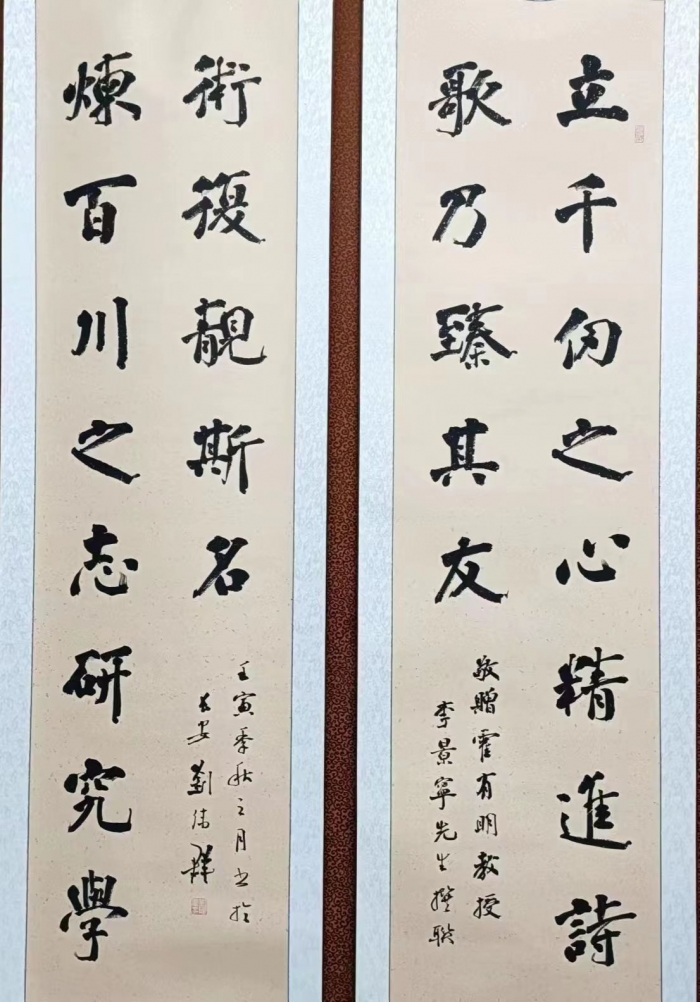 立千仞之心精進詩
歌乃臻其友
敬贈霍有明教授
李景寧先生撰聯
煉百川之志研究學
術復靚斯名
壬寅季秋之月书於
长安劉